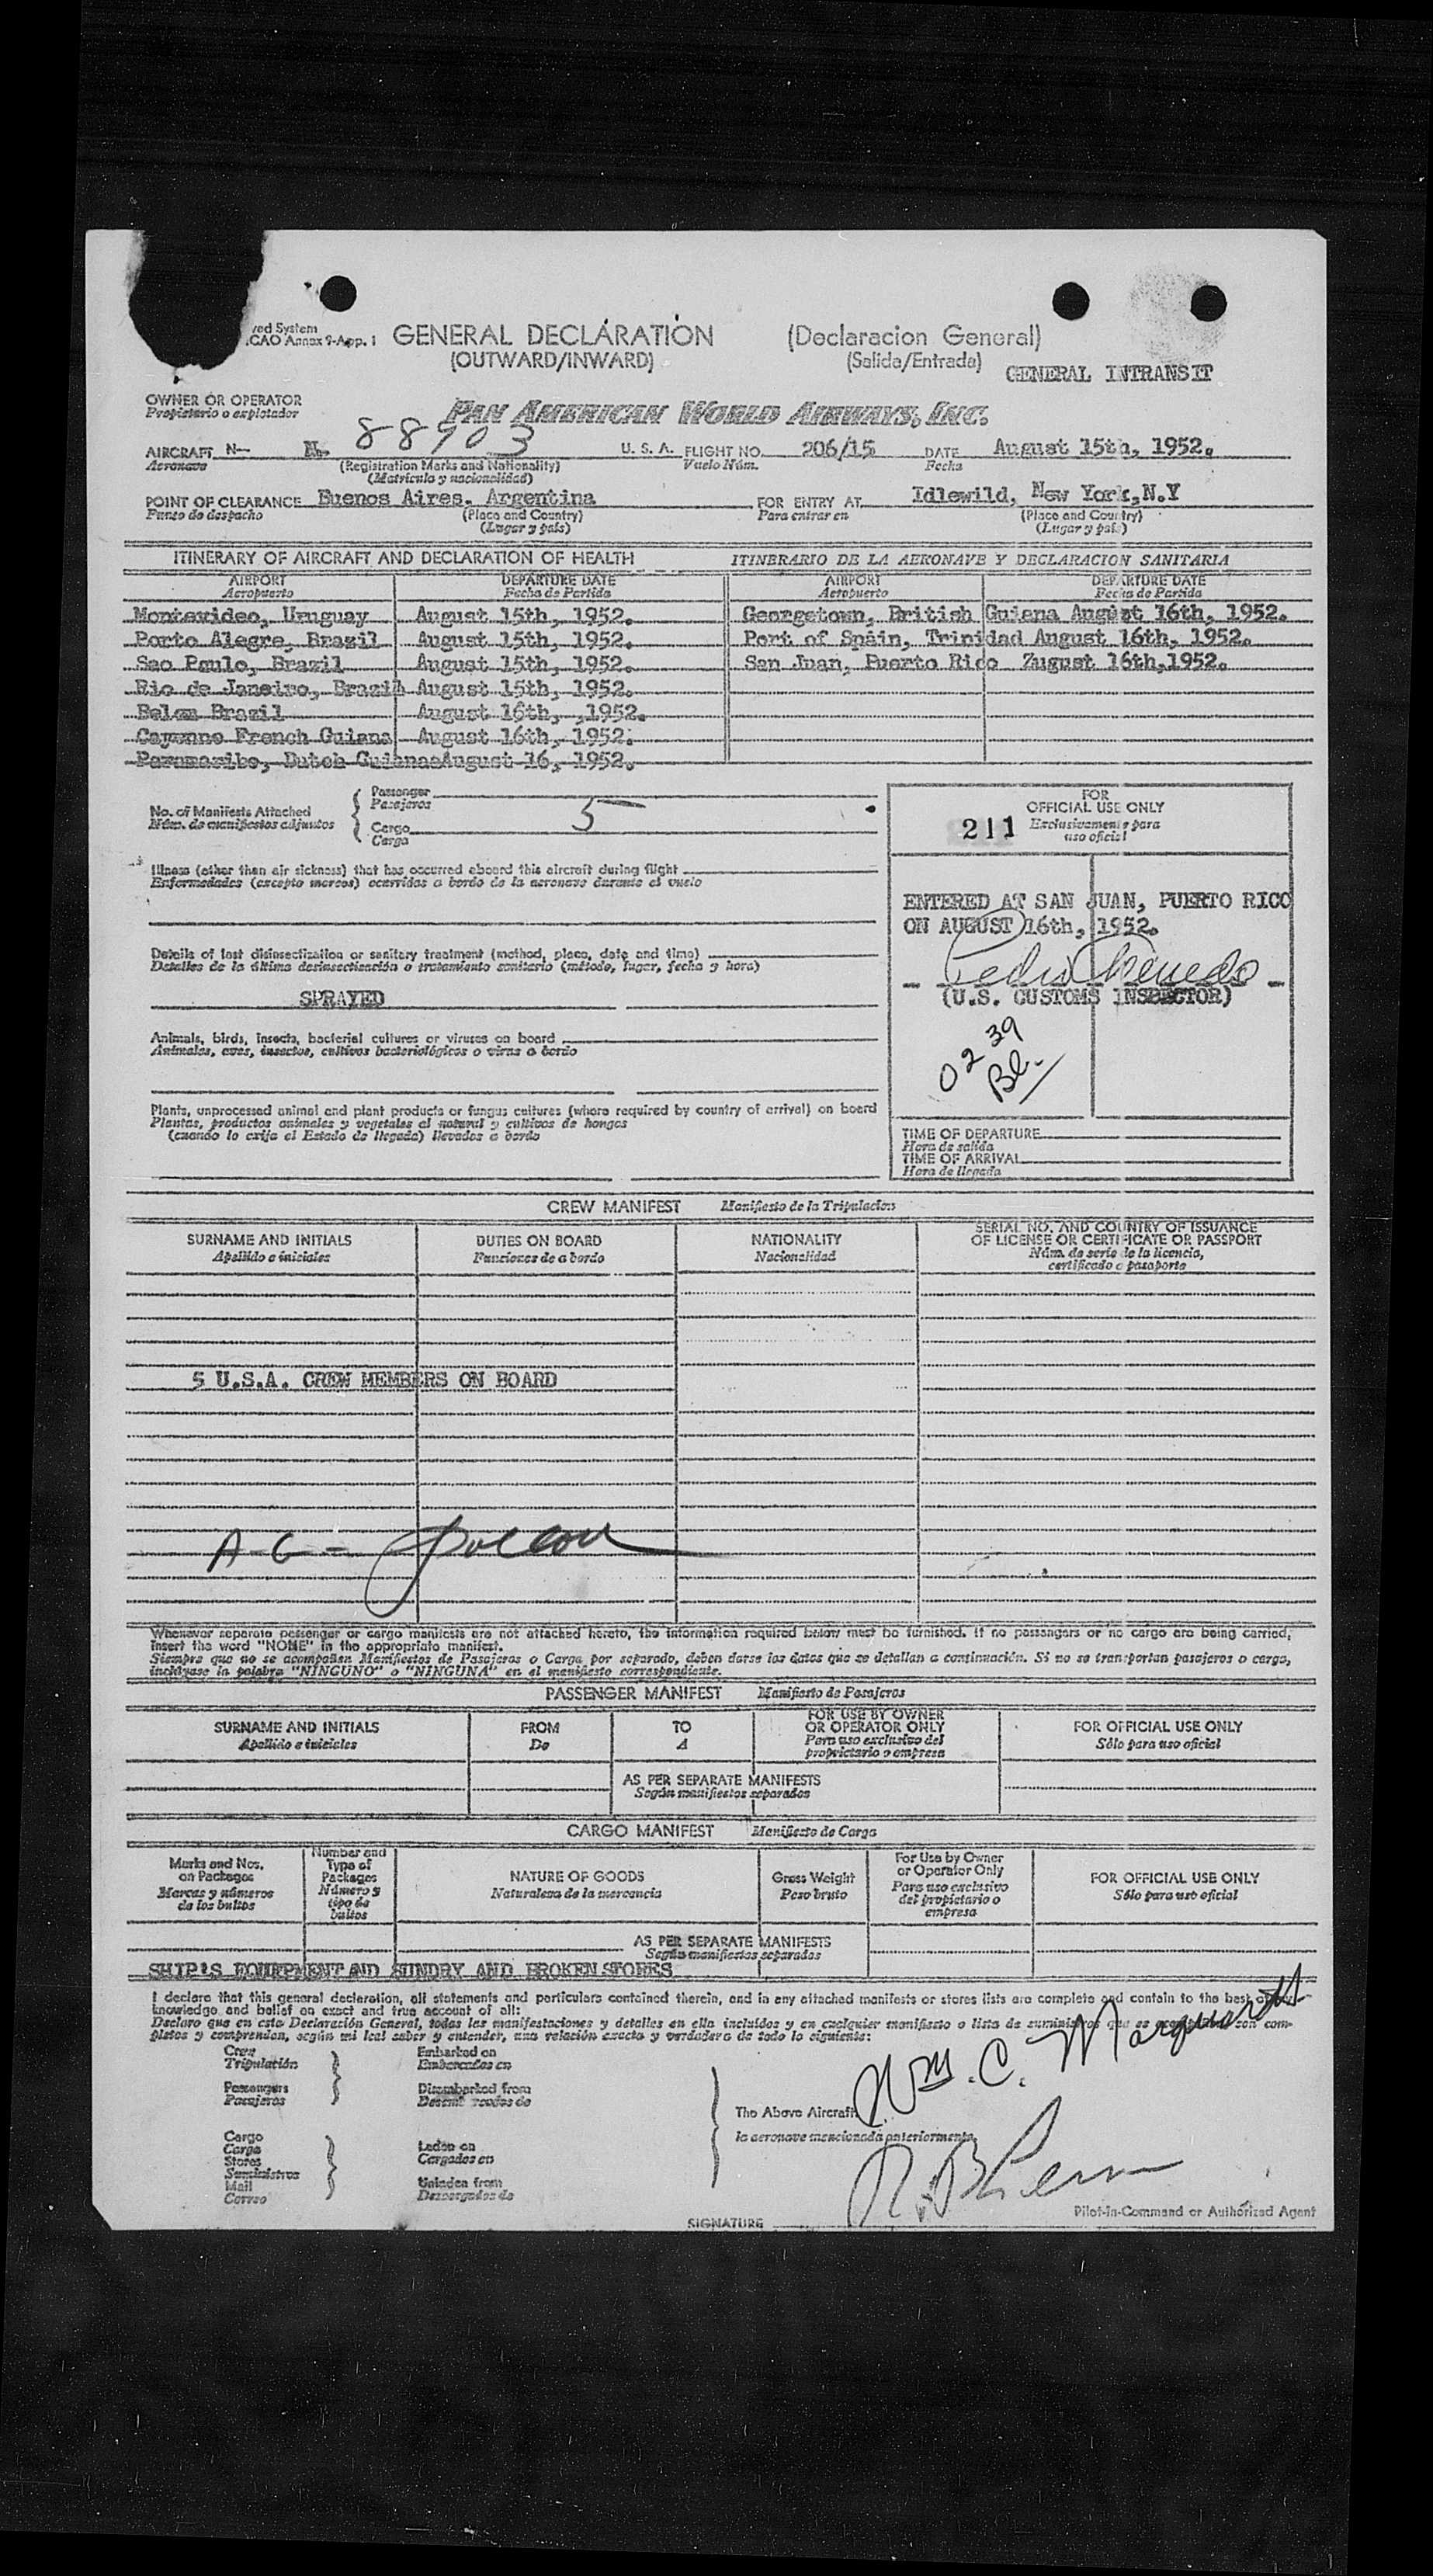 ved System
CAO Annex 9-App. 1
GENERAL DECLARATION (Declaracion General)
(OUTWARD/INWARD) (Salida/Entrada)
GENERAL INTRANSIT
OWNER OR OPERATOR
Propietario o explotador
PAN AMERICAN WORLD AIRWAYS, INC.
AIRCRAFT N- N. 88903 U. S. A. FLIGHT NO. 206/15 DATE August 15th, 1952.
Aeronave (Registration Marks and Nationality) Vuelo Núm. Fecha
(Matricula y nacionalidad)
POINT OF CLEARANCE Buenos Aires. Argentina FOR ENTRY AT Idlewild, New York,N.Y
Punto de despacho (Place and Country) Para entrar en (Place and Country)
(Lugar y país) (Lugar y país)
ITINERARY OF AIRCRAFT AND DECLARATION OF HEALTH ITINERARIO DE LA AERONAVE Y DECLARACION SANITARIA
AIRPORT DEPARTURE DATE AIRPORT DEPARTURE DATE
Aeropuerto Fecha de Partida Aeropuerto Fecha de Partida
Montevideo, Uruguay August 15th, 1952. Georgetown, British Guiana August 16th, 1952.
Porto Alegre, Brazil August 15th, 1952. Port of Spain, Trinidad August 16th, 1952.
Sao Paulo, Brazil August 15th, 1952. San Juan, Puerto Rico Zugust 16th,1952.
Rio de Janeiro, Brazil August 15th, 1952.
Belem Brazil August 16th, ,1952.
Cayenne French Guiana August 16th, 1952.
Paramaribo, Dutch Guianae August 16, 1952.
No. of Manifests Attached
Núm. de manifiestos adjuntos
Passenger
Pasajeros
5
Cargo
Carga
FOR
OFFICIAL USE ONLY
211 Exclusivamente para
uso oficial
Illness (other than air sickness) that has occurred aboard this aircraft during flight
Enfermedades (excepto mareos) ocurridas a bordo de la aeronave durante el vuelo
ENTERED AT SAN JUAN, PUERTO RICO
ON AUGUST 16th, 1952.
(U.S. CUSTOMS INSPECTOR)
0239
Bl.
Details of last disinsectization or sanitary treatment (method, place, date and time)
Detalles de la última desinsectización o tratamiento sanitario (método, lugar, fecha y hora)
SPRAYED
Animals, birds, insects, bacterial cultures or viruses on board
Animales, aves, insectos, cultivos bacteriológicos o virus a bordo
Plants, unprocessed animal and plant products or fungus cultures (where required by country of arrival) on board
Plantas, productos animales y vegetales al natural y cultivos de hongos
(cuando lo exija el Estado de llegada) llevados a bordo
TIME OF DEPARTURE
Hora de salida
TIME OF ARRIVAL
Hora de llegada
CREW MANIFEST Manifiesto de la Tripulacion
SURNAME AND INITIALS DUTIES ON BOARD NATIONALITY SERIAL NO. AND COUNTRY OF ISSUANCE
OF LICENSE OR CERTIFICATE OR PASSPORT
Apellido e iniciales Funciones de a bordo Nacionalidad Núm. de serie de la licencia,
certificado o pasaporte
5 U.S.A. CREW MEMBERS ON BOARD
A-C-
Whenever separate passenger or cargo manifests are not attached hereto, the information required below must be furnished. If no passengers or no cargo are being carried,
insert the word "NONE" in the appropriate manifest.
Siempre que no se acompañen Manifiestos de Pasajeros o Carga por separado, deben darse los datos que se detallan a continuación. Si no se transportan pasajeros o carga,
inclúyase la palabra "NINGUNO" o "NINGUNA" en el manifiesto correspondiente.
PASSENGER MANIFEST Manifiesto de Pasajeros
SURNAME AND INITIALS FROM TO FOR USE BY OWNER
OR OPERATOR ONLY FOR OFFICIAL USE ONLY
Apellido e iniciales De A Para uso exclusivo del
propietario o empresa Sólo para uso oficial
AS PER SEPARATE MANIFESTS
Según manifiestos separados
CARGO MANIFEST Manifiesto de Carga
Marks and Nos.
on Packages
Marcas y números
de los bultos
Number and
Type of
Packages
Número y
tipo de
bultos
NATURE OF GOODS
Naturaleza de la mercancia
Gross Weight
Peso bruto
For Use by Owner
or Operator Only
Para uso exclusivo
del propietario o
empresa
FOR OFFICIAL USE ONLY
Sólo para uso oficial
AS PER SEPARATE MANIFESTS
Según manifiestos separados
SHIP'S EQUIPMENT AND SUNDRY AND BROKEN STORES
I declare that this general declaration, all statements and particulars contained therein, and in any attached manifests or stores lists are complete and contain to the best of my
knowledge and belief an exact and true account of all:
Declaro que en esta Declaración General, todas las manifestaciones y detalles en ella incluidos y en cualquier manifiesto o lista de suministros que se acompañan son com-
pletos y comprenden, según mi leal saber y entender, una relación exacta y verdadera de todo lo siguiente:
Crew
Tripulación
Passengers
Pasajeros
Embarked on
Embarcados en
Disembarked from
Cargo
Carga
Stores
Suministros
Mail
Correo
Laden on
Cargados en
Unladen from
Descargados de
The Above Aircraft
la aeronave mencionada anteriormente
Wm. C. Marquardt
SIGNATURE
Pilot-in-Command or Authorized Agent